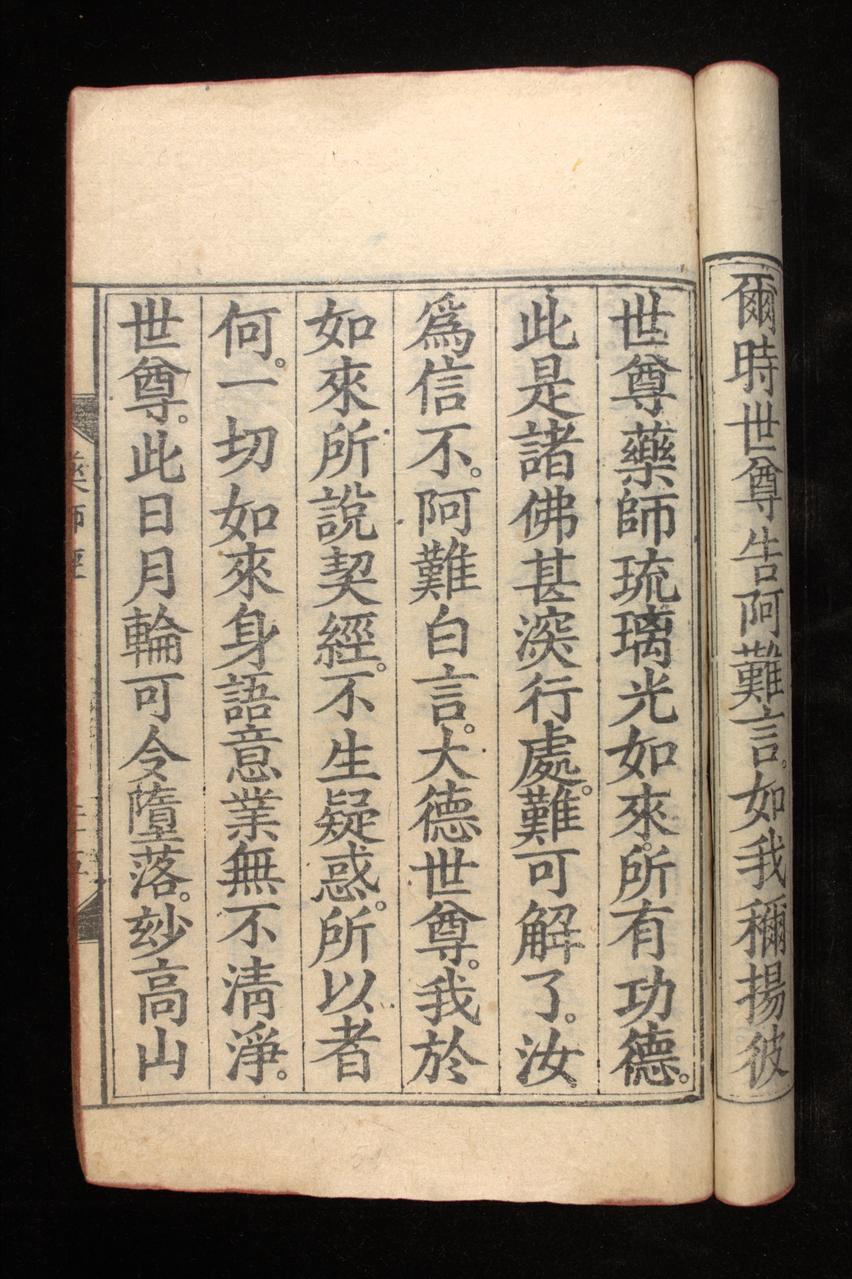 爾時世尊告阿難言。如我稱揚彼
世尊藥師琉璃光如來。所有功德。
此是諸佛甚深行處。難可解了。汝
為信不。阿難白言。大德世尊。我於
如來所說契經。不生疑惑。所以者
何。一切如來身語意業無不清淨。
世尊。此日月輪可令墮落。妙高山
藥師經